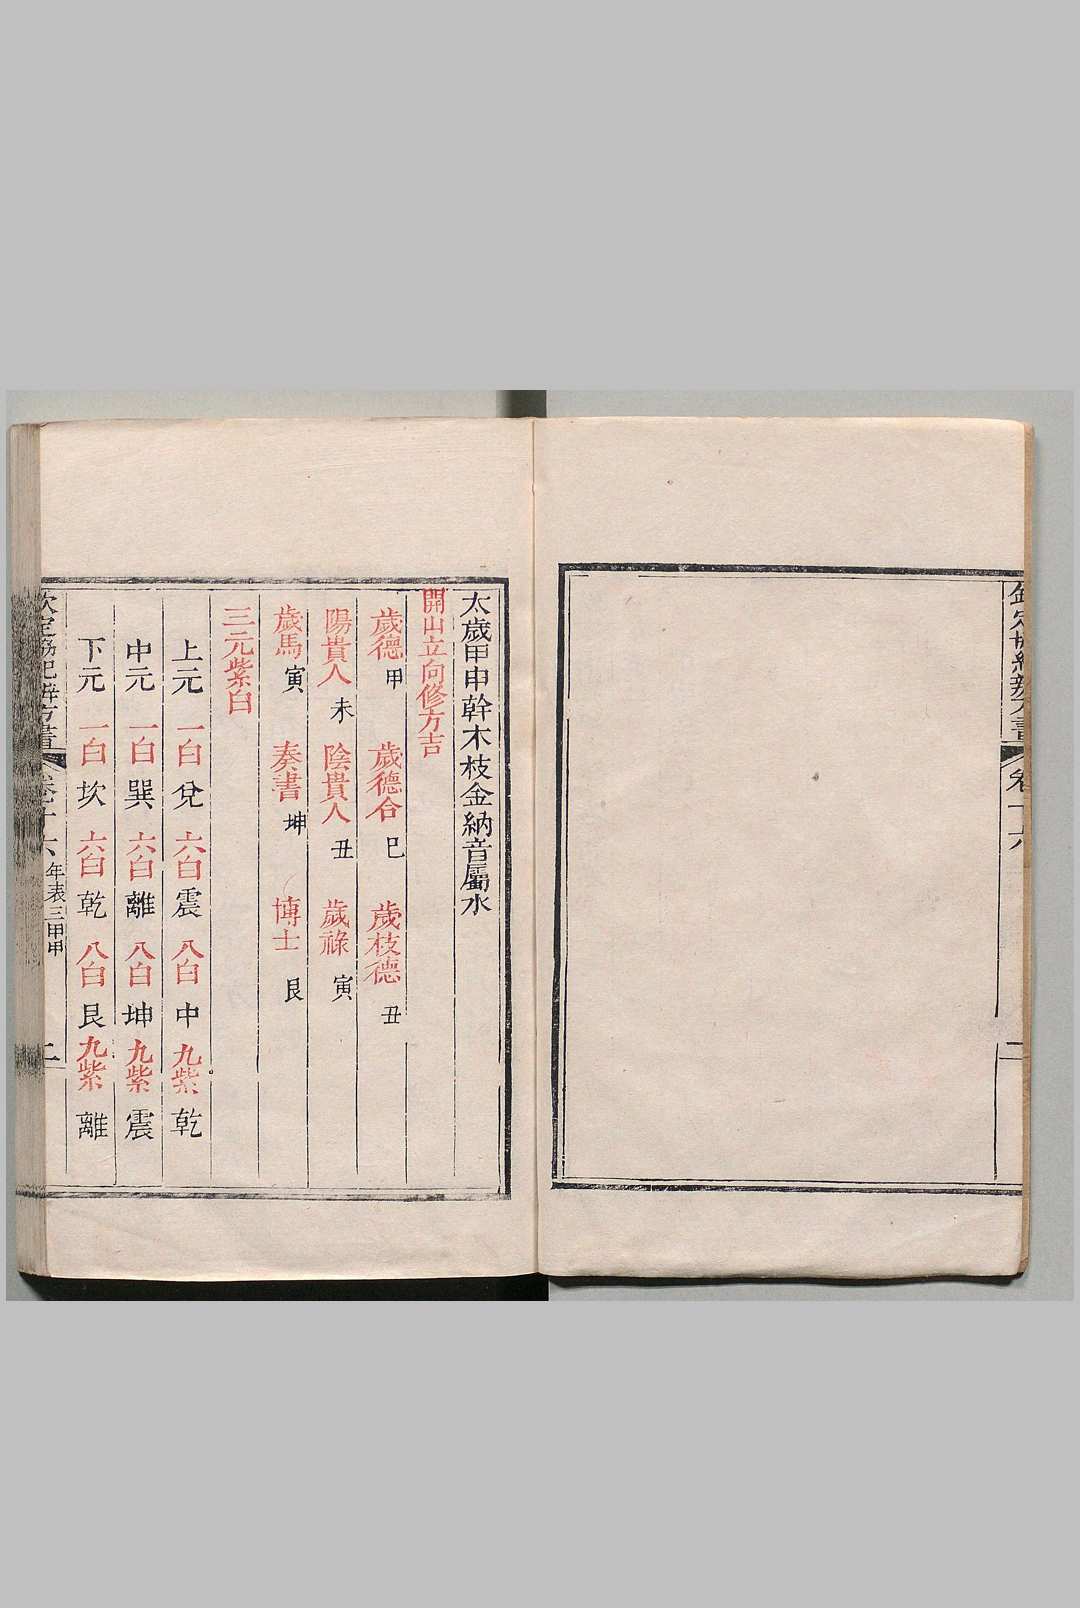 欽定協紀辨方書 卷十六
太歲甲申幹木枝金納音屬水
開山立向修方吉
歲德 甲 歲德合 巳 歲枝德 丑
陽貴人 未 陰貴人 丑 歲祿 寅
歲馬 寅 奏書 坤 博士 艮
三元紫白
上元 一白 兌 六白 震 八白 中 九紫 乾
中元 一白 巽 六白 離 八白 坤 九紫 震
下元 一白 坎 六白 乾 八白 艮 九紫 離
欽定協紀辨方書 卷十六 年表三甲申